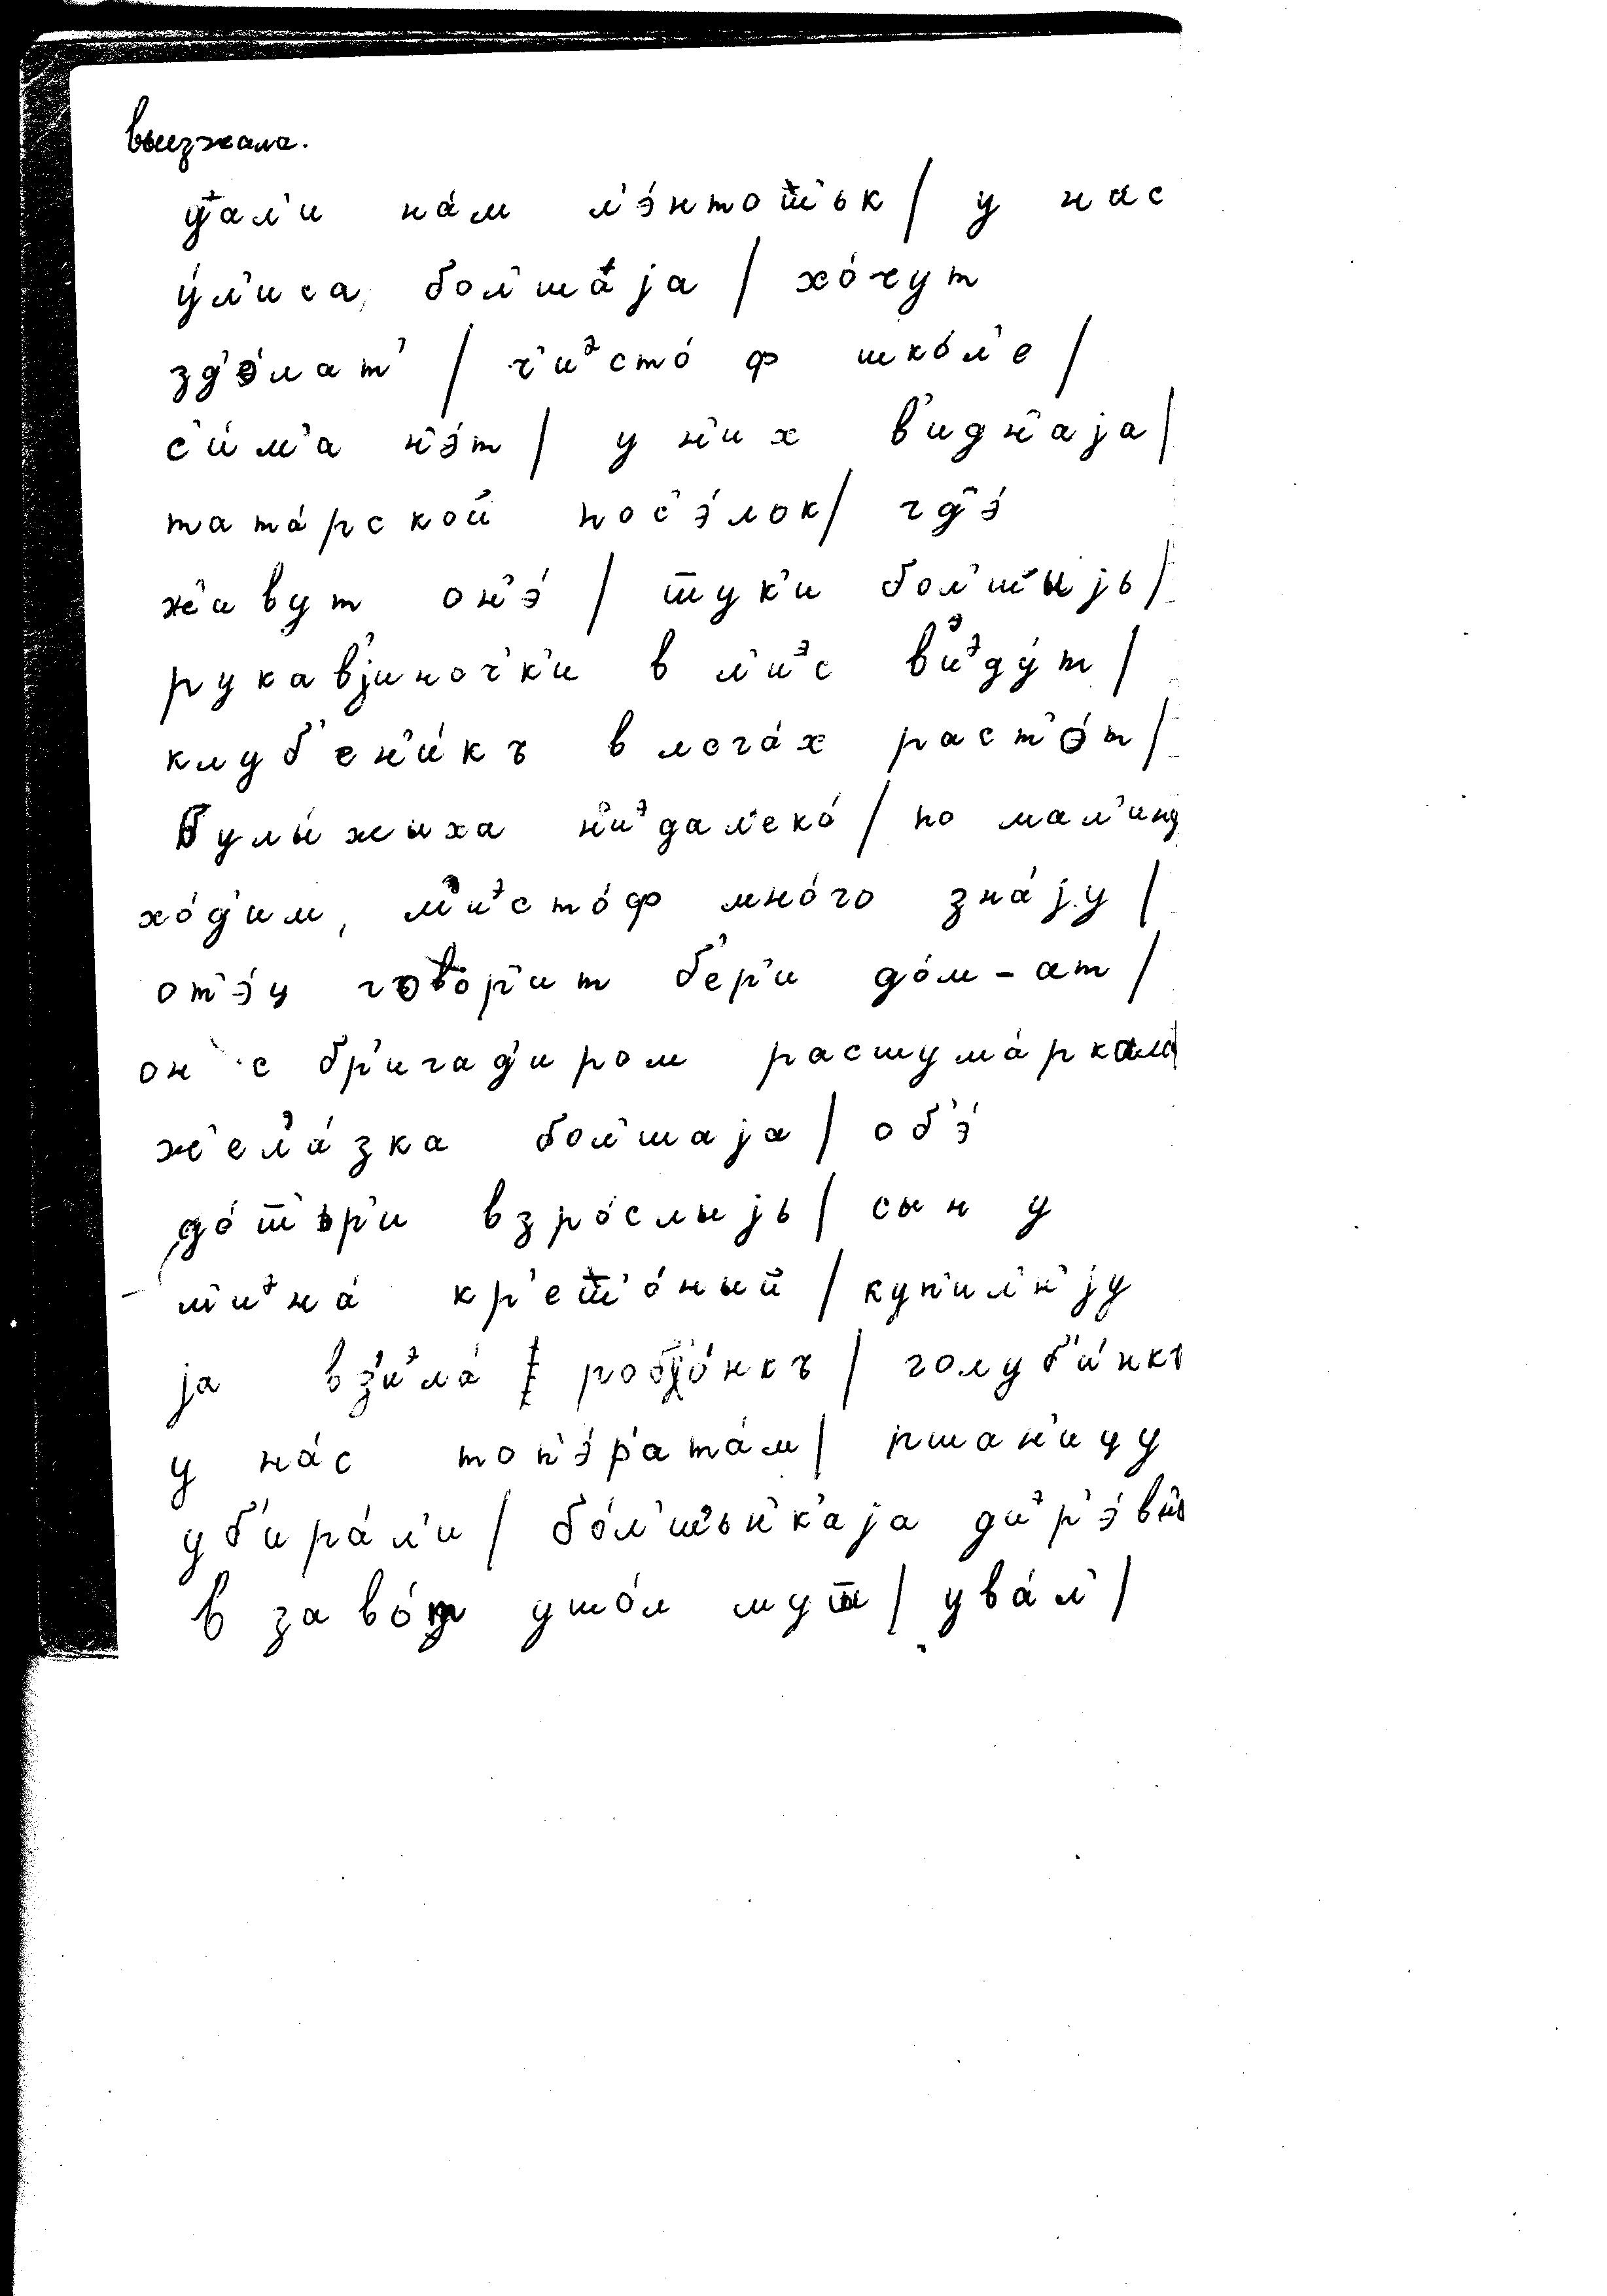 выезжала.
дал'и на́м л'э́нтош'ък / у нас
у́л'иса, бол'ша́jа / хо́чут
зд'е́лат' / ч'иэсто́ ф шко́л'е /
с'и́м'а н'э́т / у н'их в'идн'аjа /
тата́рской пос'э́лок / гд'э́
ж'ивут он'э́ / штук'и бол'шыjь /
рукавjиноч'к'и в л'иэс в'иэду́т /
клуб'ен'и́къ в лога́х раст'о́т /
Булы́жыха н'иэдал'еко́ / по мал'ину
хо́д'им, м'иэсто́ф мно́го зна́jу /
от'э́ц говор'ит б'ер'и до́м-ат /
он с бр'игад'иром расшума́ркала
ж'ел'а́зка бол'шаjа / об'э́
до́ш'ър'и взро́слыjь / сын у
м'иэна́ кр'еш'о́ный / куп'ил'н'jу
jа вз'иэла́ роб'о́нкъ / голуб'и́нкъ
у на́с топ'э́р'ата́м / пшан'ицу
уб'ира́л'и / бо́л'ш'ьн'к'аjа д'иэр'э́вн'ь
в заво́т ушо́л муш / ува́л' /